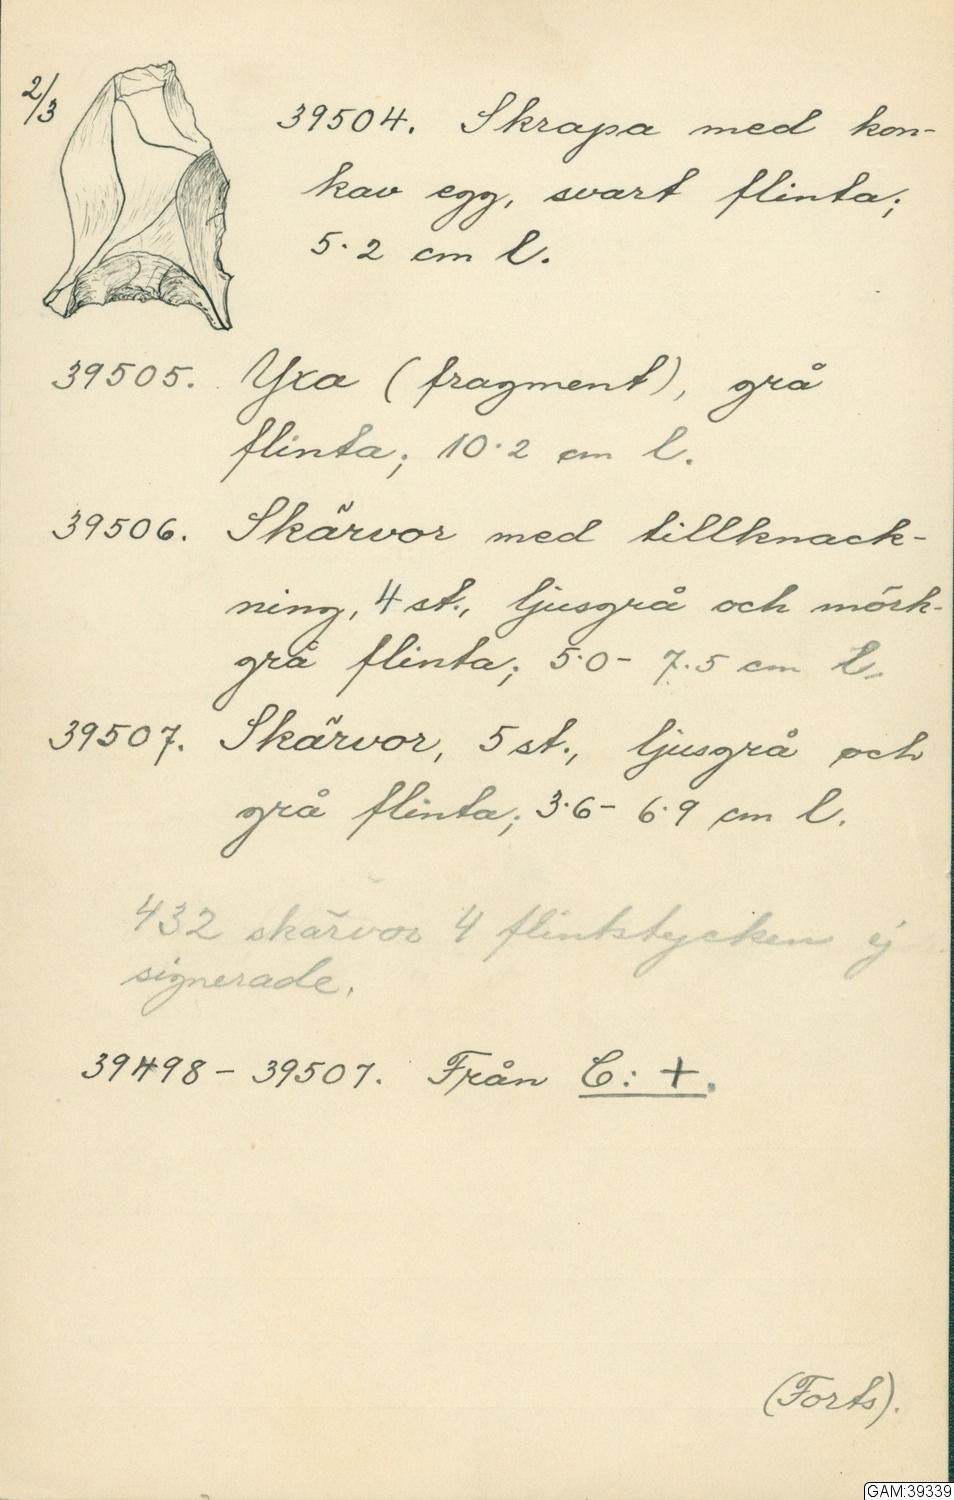 2/3
39504. Skrapa med kon-
kav egg, svart flinta;
5.2 cm l.
39505. Yxa (fragment), grå
flinta; 10.2 cm l.
39506. Skärvor med tillknack-
ning, 4 st., ljusgrå och mörk-
grå flinta; 5.0 - 7.5 cm l.
39507. Skärvor, 5 st., ljusgrå och
grå flinta; 3.6 - 6.9 cm l.
432 skärvor 4 flintstycken ej
signerade.
39498 - 39507. Från C: +.
(Forts).
GAM:39339